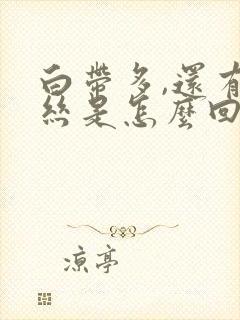 白帶多,還有
絲是怎麼回
涼亭